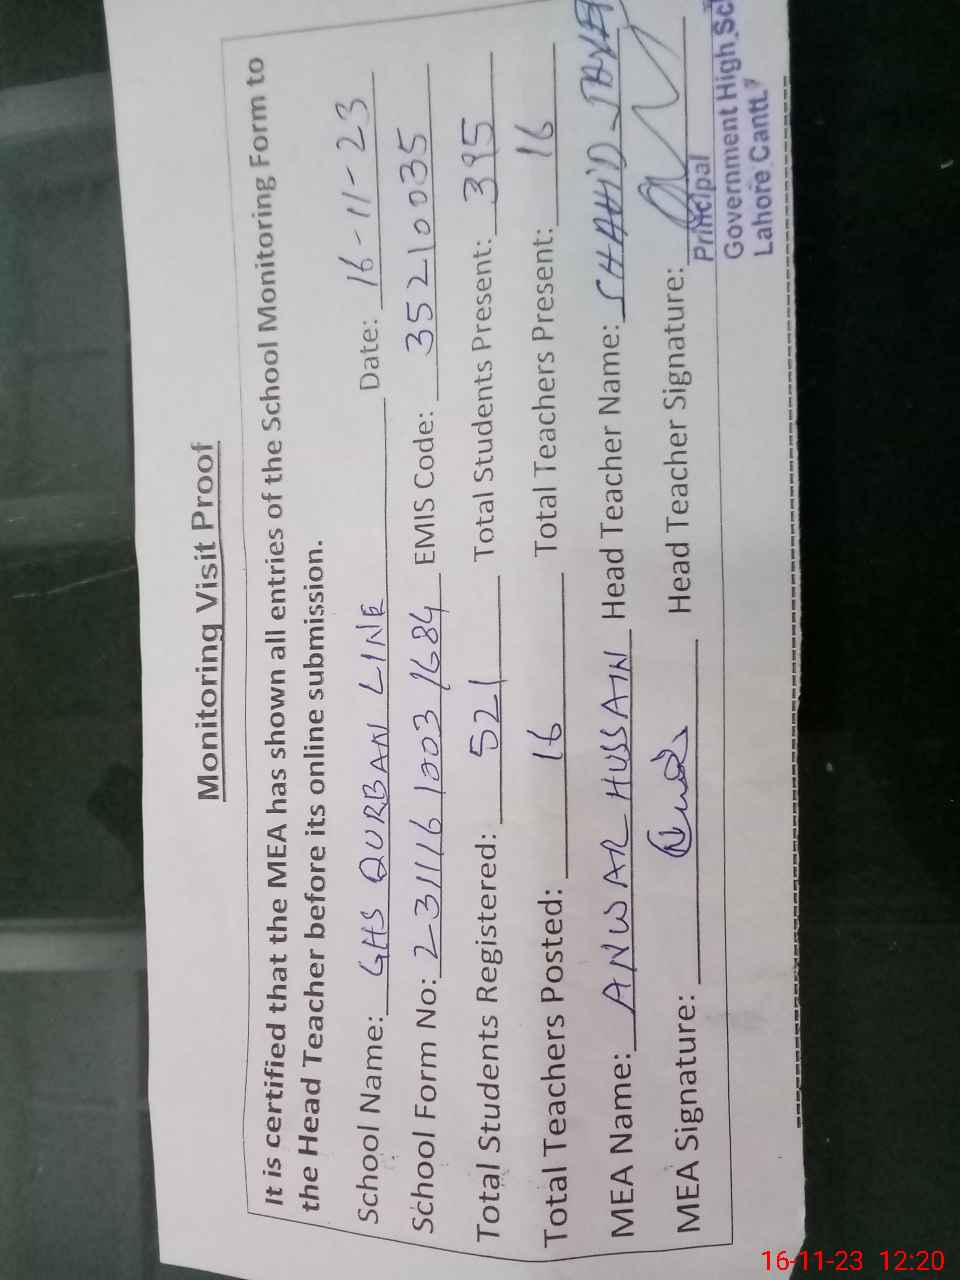 Monitoring Visit Proof
It is certified that the MEA has shown all entries of the School Monitoring Form to
the Head Teacher before its online submission.
School Name: GHS QURBAN LINE Date: 16-11-23
School Form No: 23111610031684 EMIS Code: 35210035
Total Students Registered: 521 Total Students Present: 395
Total Teachers Posted: 16 Total Teachers Present: 16
MEA Name: ANWAR HUSSAIN Head Teacher Name: SHAHID
MEA Signature: Head Teacher Signature:
Principal
Government High
Lahore Cantt.
16-11-23 12:20